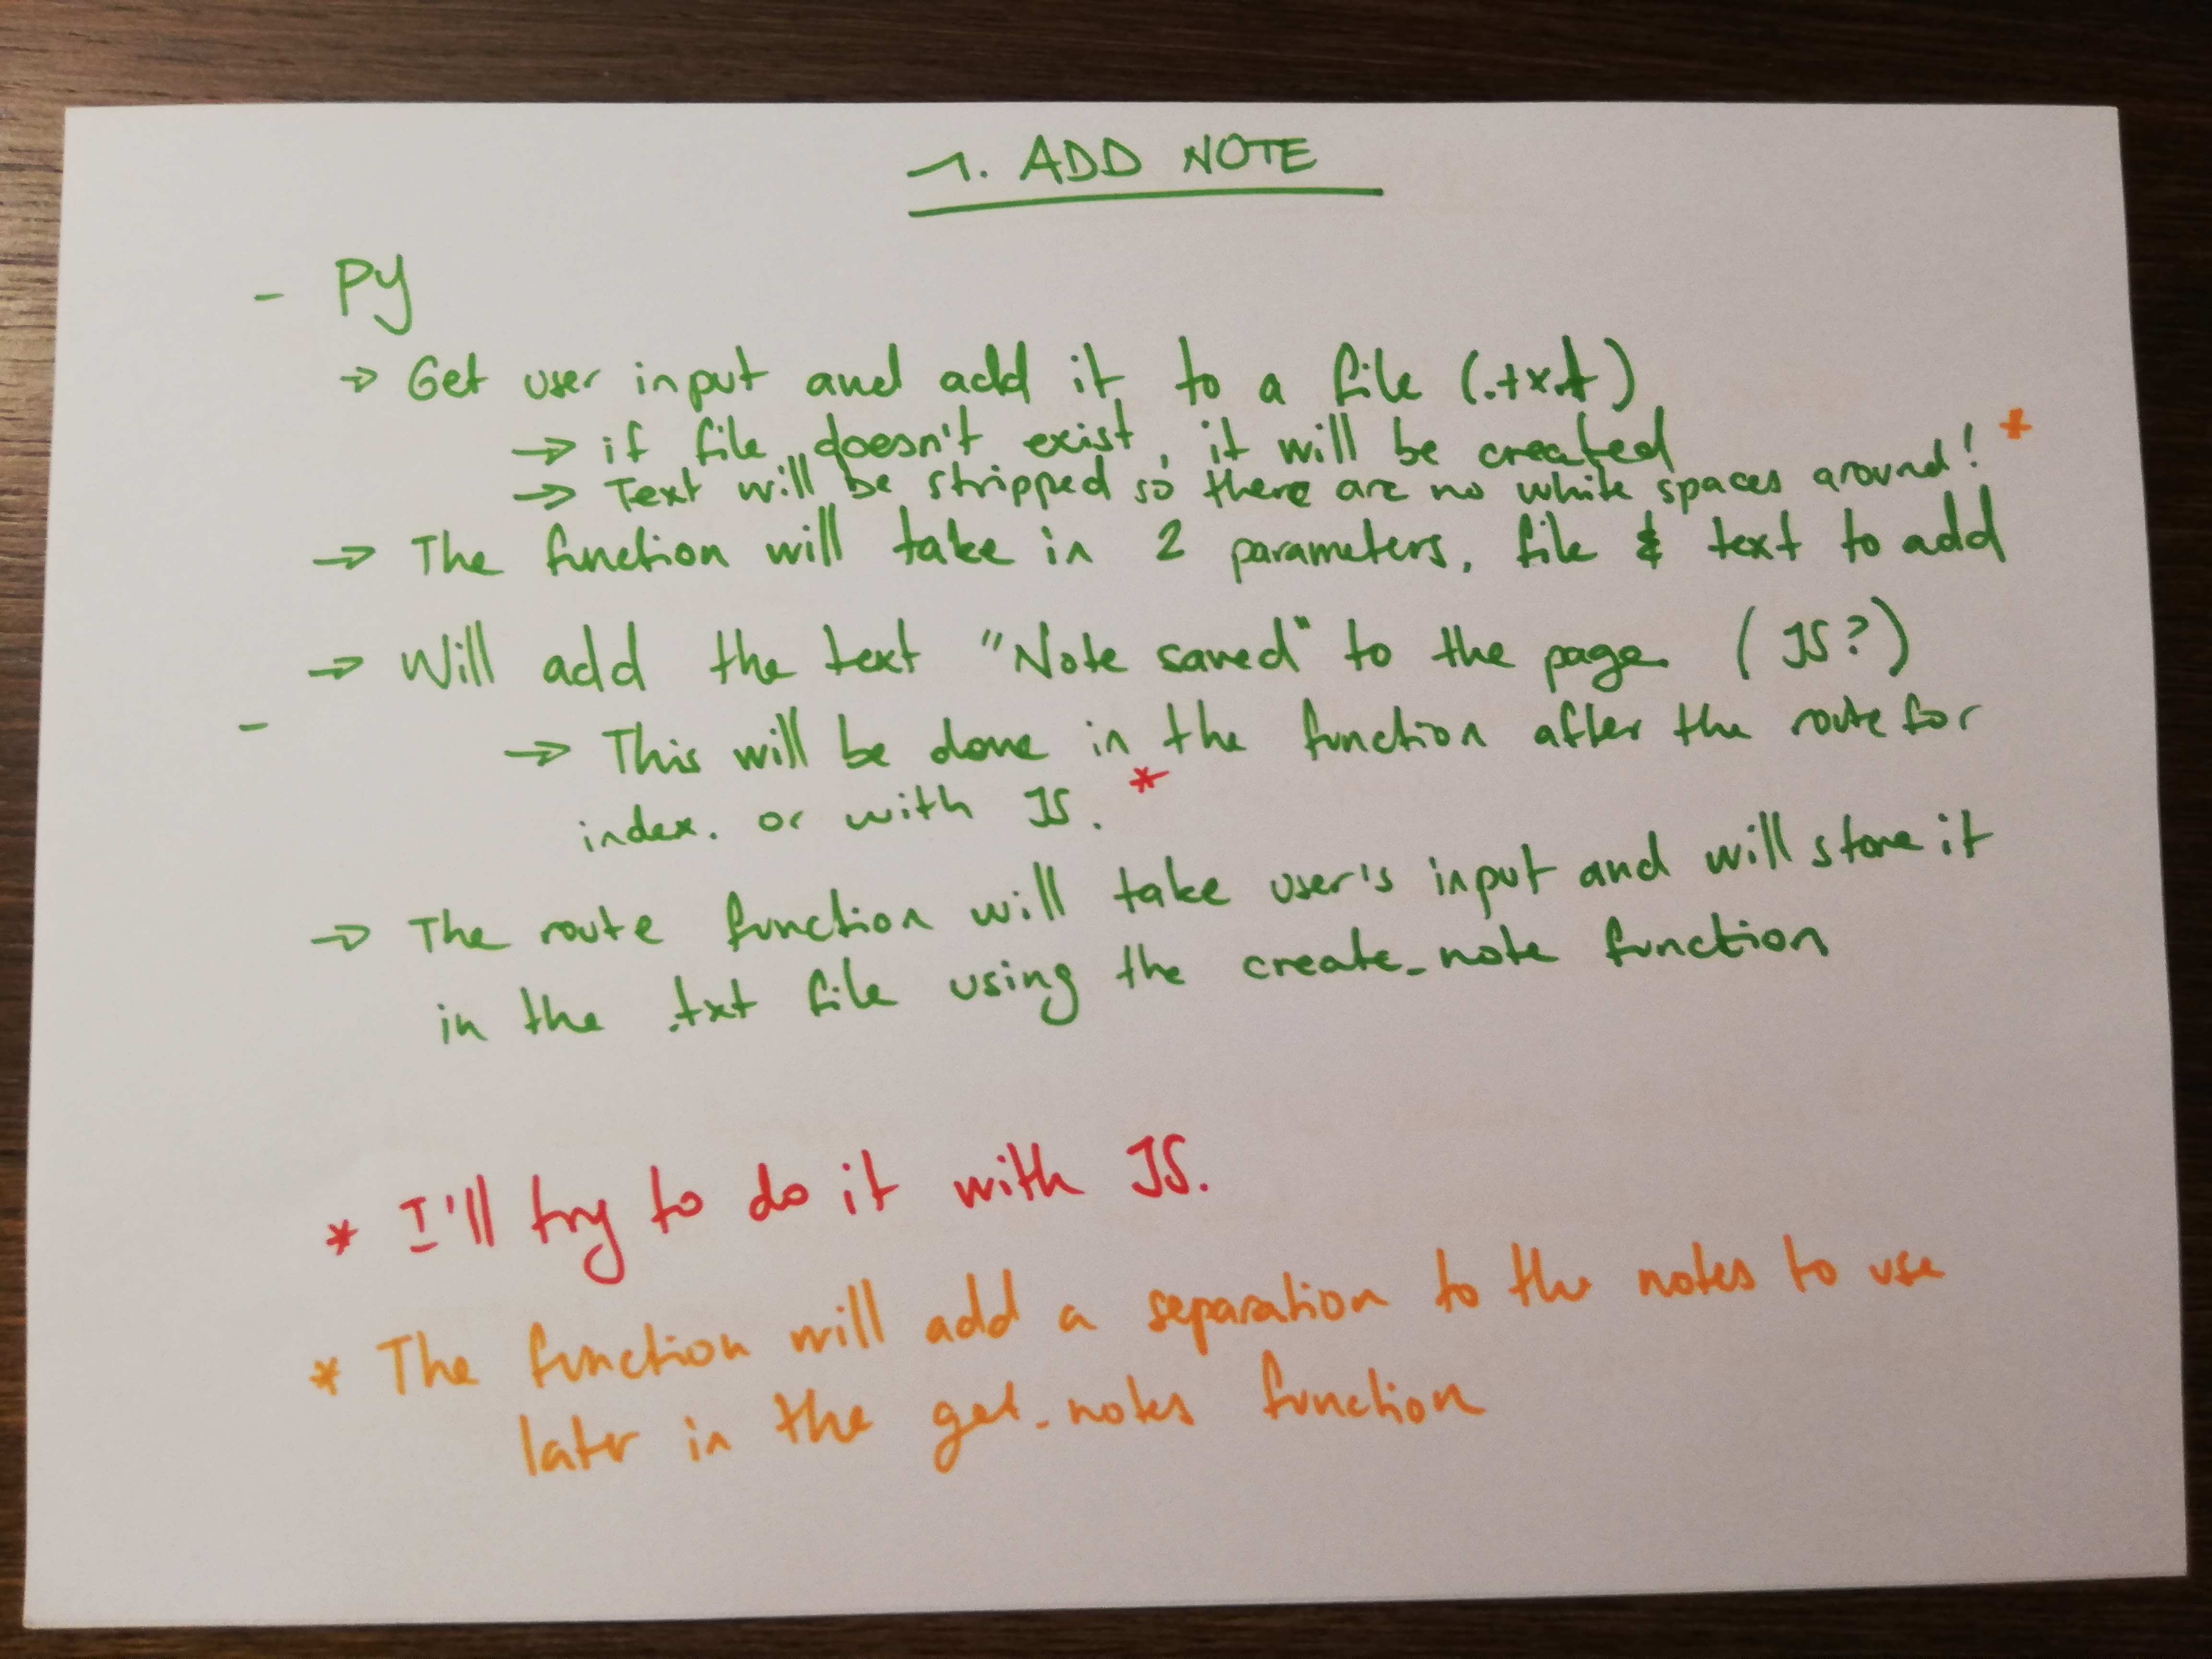 1. ADD NOTE
- PY
→ Get user input and add it to a file (.txt)
→ if file doesn't exist, it will be created
→ Text will be stripped so there are no white spaces around! *
→ The function will take in 2 parameters, file & text to add
→ Will add the text "Note saved" to the page. (JS?)
-
→ This will be done in the function after the route for
index. or with JS. *
→ The route function will take user's input and will store it
in the .txt file using the create_note function
* I'll try to do it with JS.
* The function will add a separation to the notes to use
later in the get_notes function